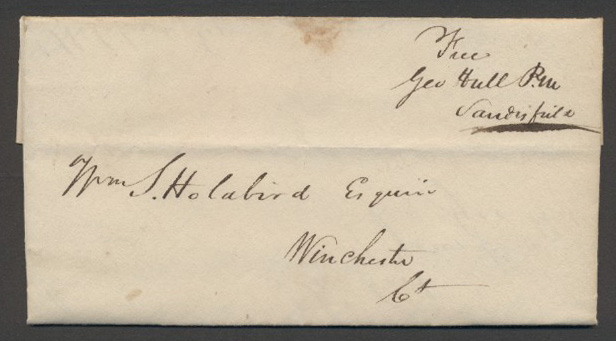 Free
Geo Hull P.M
Sandisfield
Wm S. Holabird Esquire
Winchester
Ct